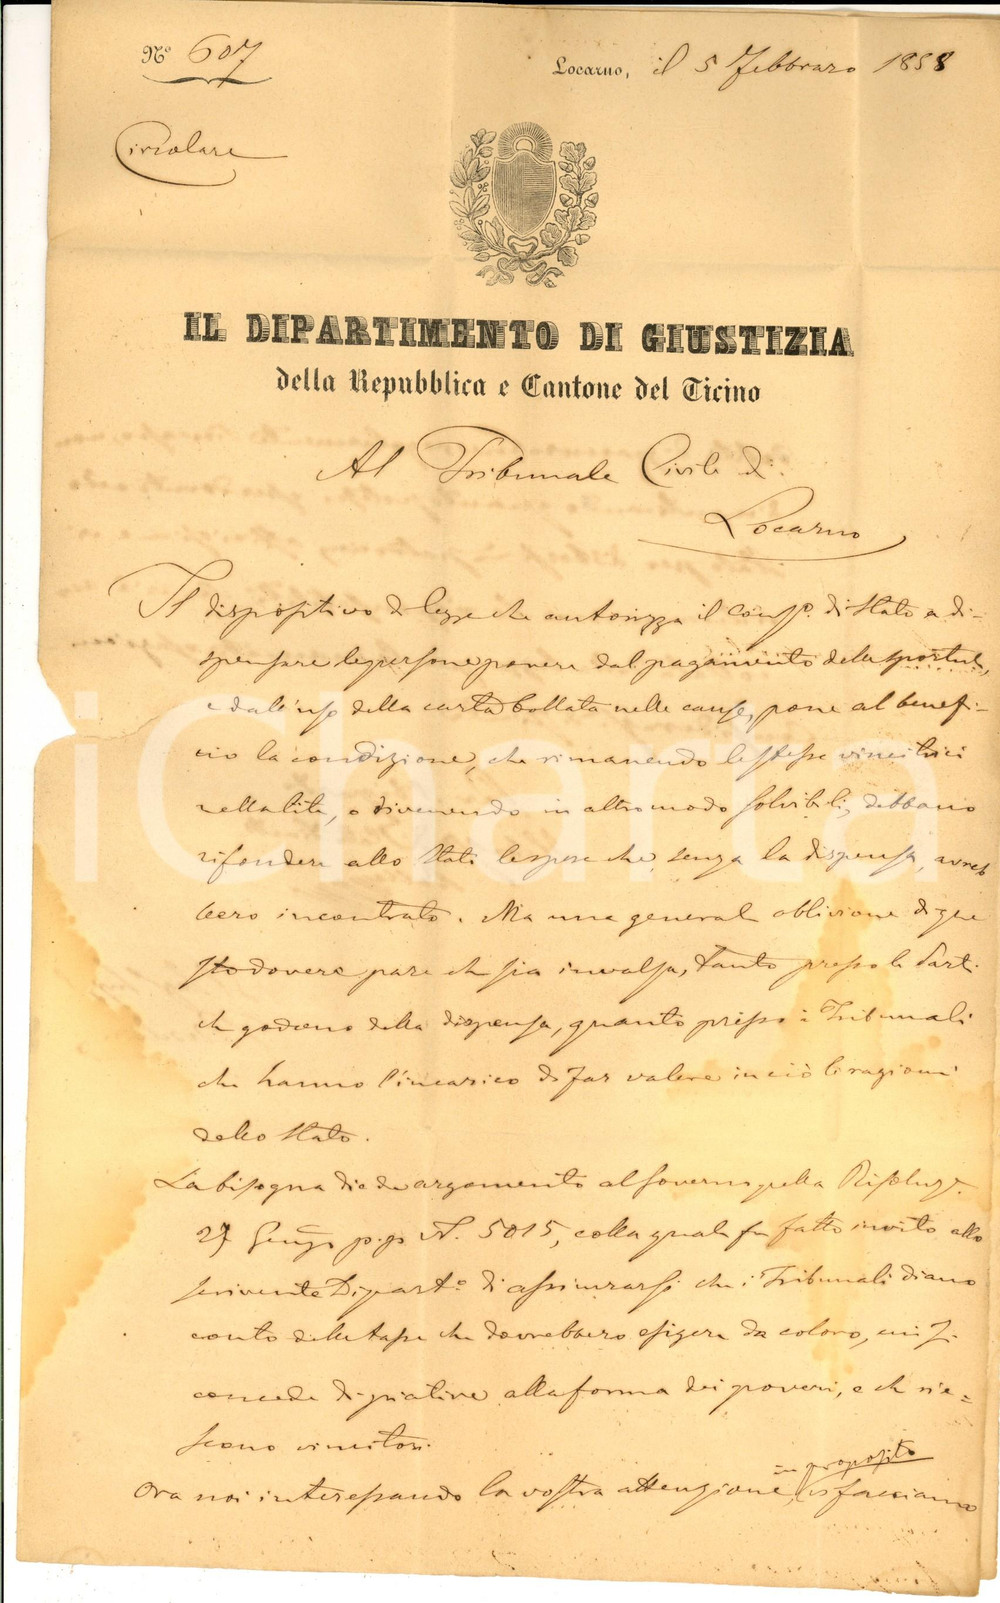 Nº 607
Locarno, il 5 Febbraro 1858
Circolare
IL DIPARTIMENTO DI GIUSTIZIA
della Repubblica e Cantone del Ticino
Al Tribunale Civile di
Locarno
Il dispositivo di legge che autorizza il Consº. di Stato a di-
spensare le persone povere dal pagamento delle sportule,
e dall'uso della carta bollata nelle cause, pone al benefi-
cio la condizione, che rimanendo le stesse vincitrici
nella lite, o divenendo in altro modo solvibili, debbano
rifondere allo Stato le spese che, senza la dispensa, avreb
bero incontrato. Ma una generale oblivione di que
sto dovere pare che sia invalsa, tanto presso le Parti
che godono della dispensa, quanto presso i Tribunali
che hanno l'incarico di far valere in ciò le ragioni
dello Stato.
La bisogna diede argomento al Governo della Risoluz.
27 Genn. p.p. N. 5015, colla quale fu fatto invito allo
scrivente Dipartº. di assicurarsi che i Tribunali diano
conto delle tasse che dovrebbero esigere da coloro, cui si
concede di piatire alla forma dei poveri, e che rie-
scono vincitori.
in proposito
Ora noi interessando la vostra attenzione, vi facciamo
iCharta